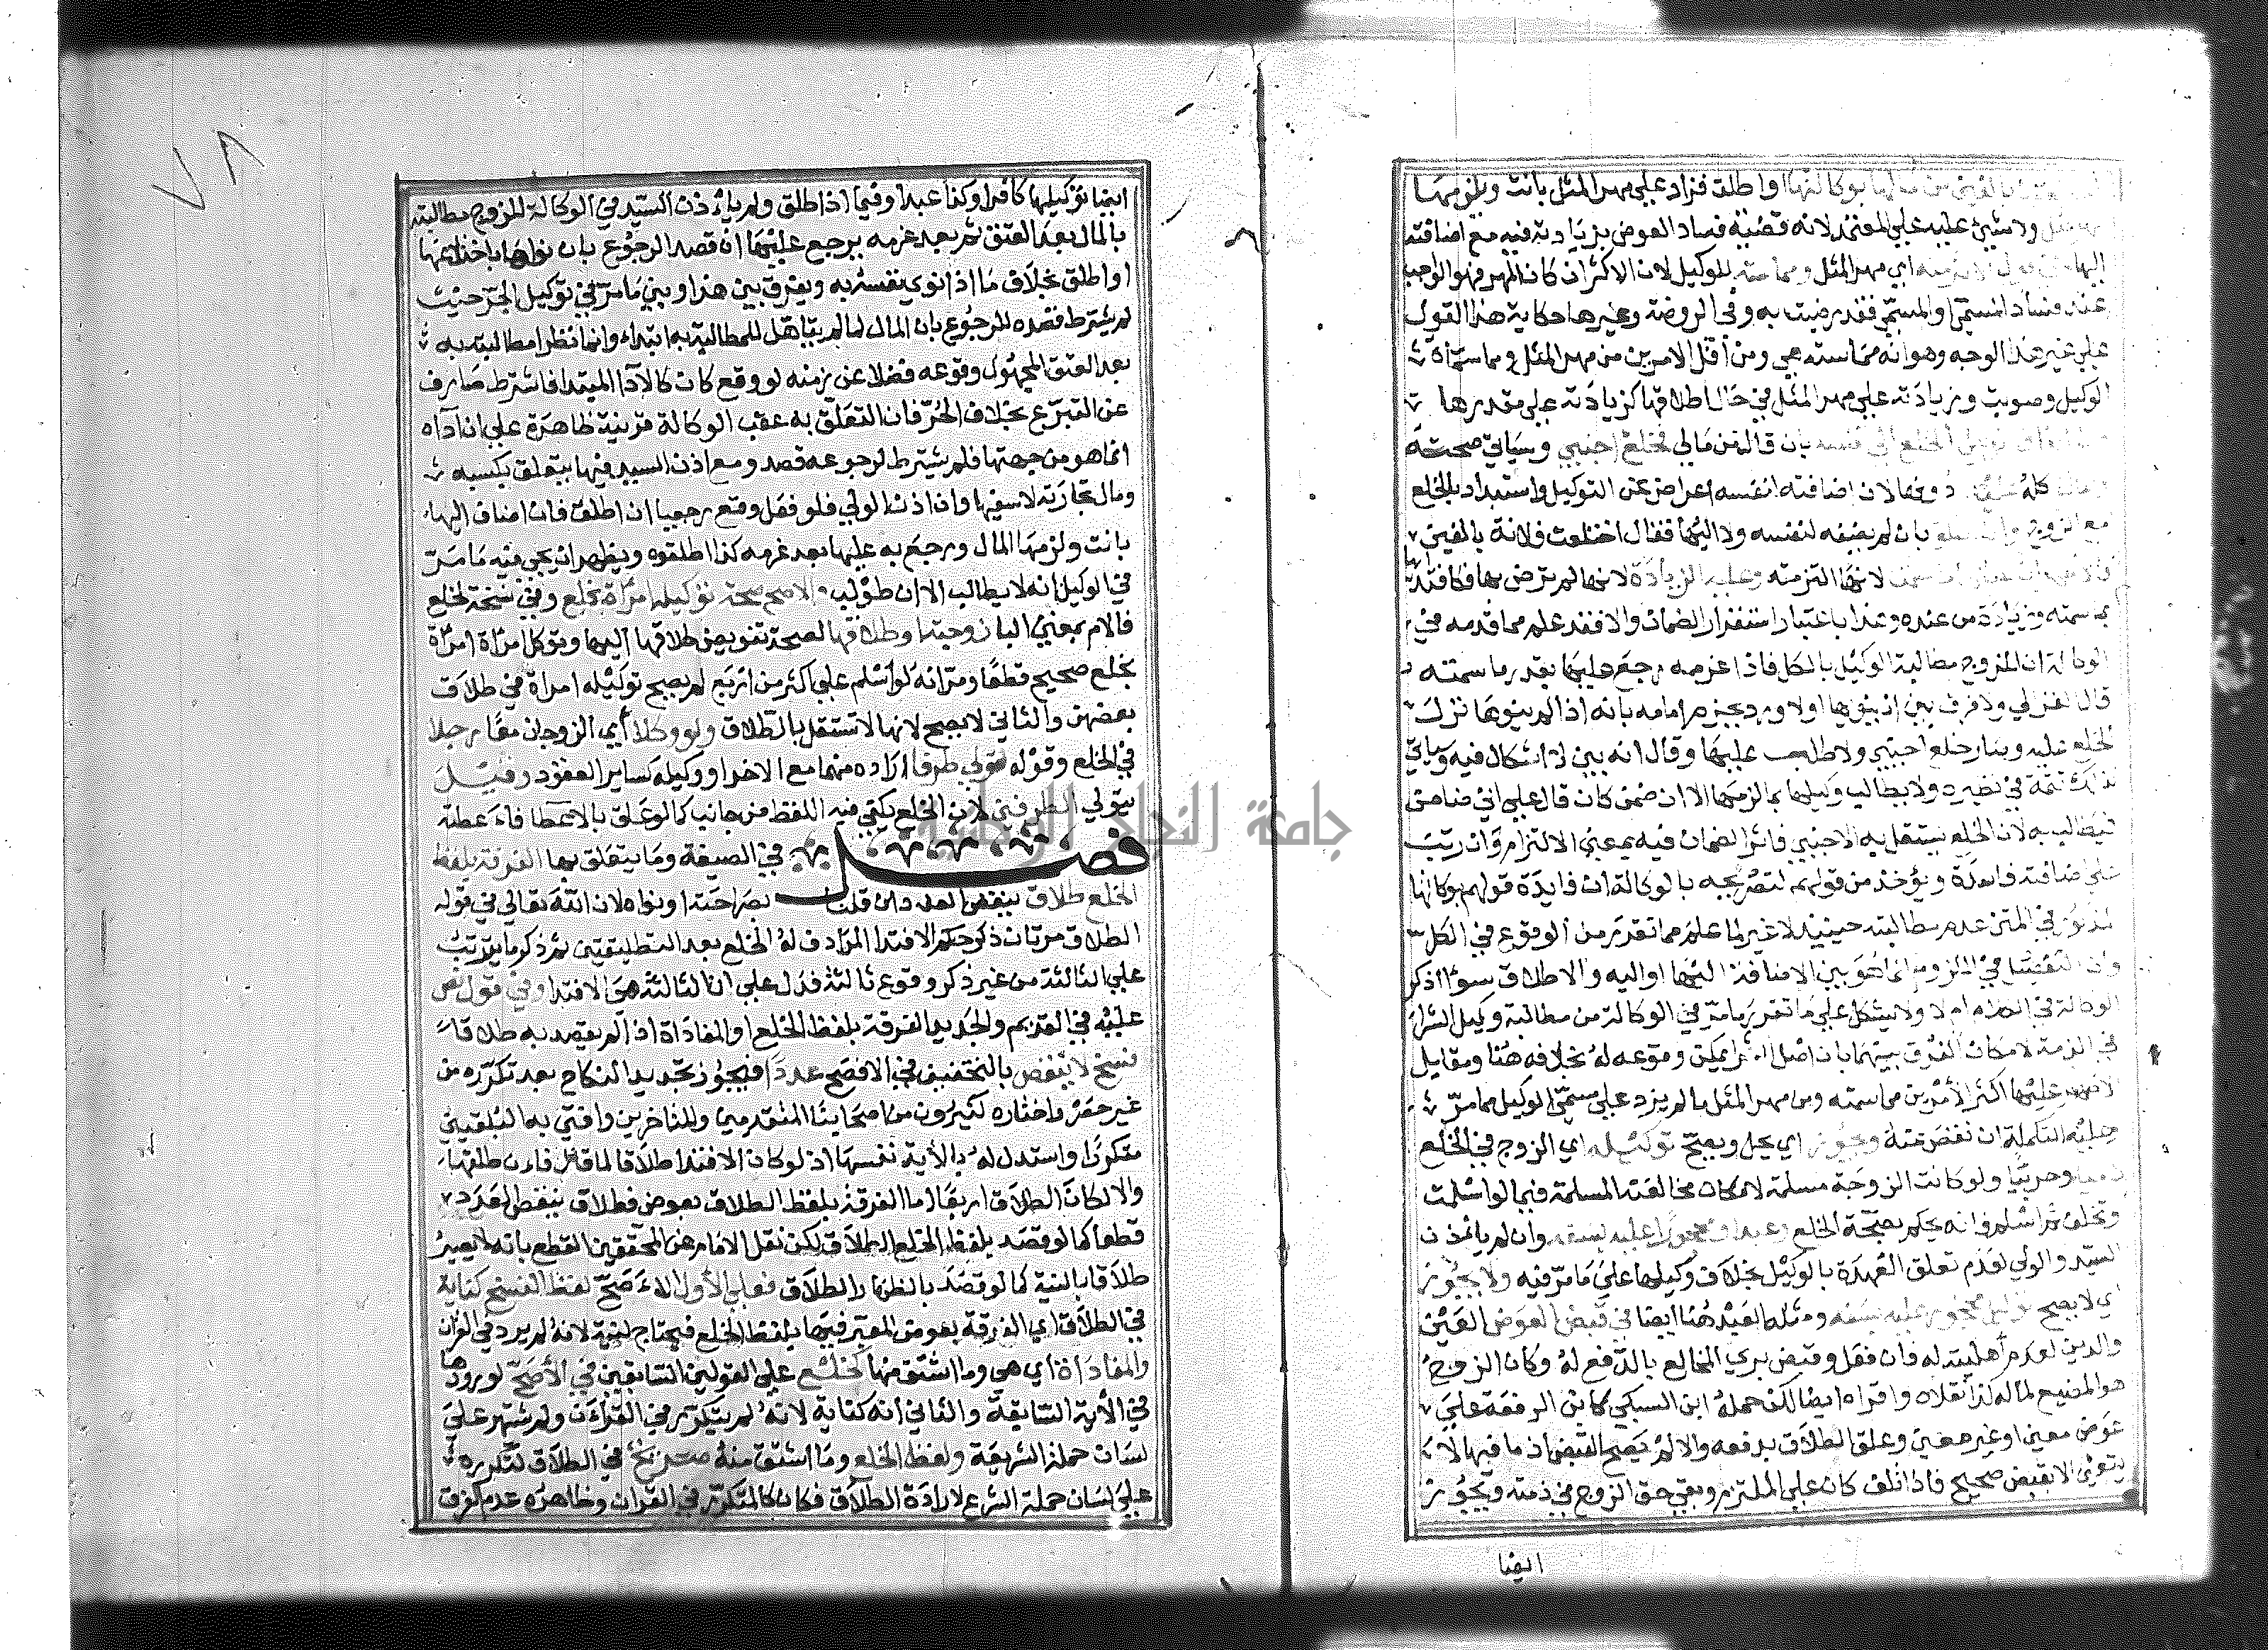 بوكالتها او اطلق فزاد علي مهر المثل بانت ويلزمها
ولا شيئ عليه علي المعتمد لانه قضية فساد العوض بزيادته فيه مع اضافته
اي مهر المثل ومما سمته للوكيل لان الاكثر ان كان المهر فهو الواجب
عند فساد المسمي او المسمي فقد رضيت به وفي الروضة وغيرها حكاية هذا القول
علي غير هذا الوجه وهو انه مما سمته هي ومن اقل الامرين من مهر المثل ومما سماه
الوكيل وصوبت وزيادته علي مهر المثل في حال اطلاقها كزيادته علي مقدرها
الخلع الي نفسه بان قال من مالي فخلع اجنبي وسياتي صحته
لان اضافته لنفسه اعراض عن التوكيل واستبداد بالخلع
مع الزوج وان اطلق بان لم يضفه لنفسه ولا اليها فقال اختلعت فلانة بالفين
لانها التزمته وعليه الزيادة لانها لم ترض بها فكافتدائها
بما سمته وزيادة من عنده وهذا باعتبار استقرار الضمان والا فقد علم مما قدمه في
الوكالة ان للزوج مطالبة الوكيل بالكل فاذا غرمه رجع عليها بقدر ما سمته
قال الغزالي ولا فرق بين ان ينويها او لا ورد بجزم امامه بانه اذا لم ينوها نزل
الخلع عليه وصار خلع اجنبي ولا طلب عليها وقال انه بين لا اشكال فيه وياتي
لذلك تتمة في نظيره ولا يطالب وكيلها بما لزمها الا ان ضمن كان قال علي اني ضامن
فيطالب به لان الخلع يستقل به الاجنبي فاثر الضمان فيه بمعني الالتزام وان رتب
علي اضافة فاسدة ويؤخذ من قولهم لتصريحه بالوكالة ان فايدة قولهم بوكالتها
المذكور في المتن عدم مطالبته حينيذ لا غير لما علم مما تقدم من الوقوع في الكل
وان التفصيل في اللزوم انما هو بين الاضافة اليها او اليه والاطلاق سوا اذكر
الوكالة في الكلام ام لا ولا يشكل علي ما تقرر ما مر في الوكالة من مطالبة وكيل الشرا
في الذمة لامكان الفرق بينهما بان اصل الشرا يمكن وقوعه له بخلافه هنا ومقابل
الاظهر عليها اكثر الأمرين مما سمته ومن مهر المثل ما لم يزد علي مسمي الوكيل مما مر
وعليه التكملة ان نقص عنه ويجوز اي يحل ويصح توكيله اي الزوج في الخلع
ذميا وحربيا ولو كانت الزوجة مسلمة لامكان مخالعته المسلمة فيما لو اسلمت
وتخلف ثم اسلم فانه يحكم بصحة الخلع وعبدا ومحجورا عليه بسفه وان لم ياذن
السيد والولي لعدم تعلق العهدة بالوكيل بخلاف وكيلها علي ما مر فيه ولا يجوز
اي لا يصح توكيل محجور عليه بسفه ومثله العبد هنا ايضا في قبض العوض العين
والدين لعدم أهليته له فان فعل وقبض بري المخالع بالدفع له وكان الزوج
هو المضيع لماله كذا نقلاه واقراه ايضا لكن حمله ابن السبكي كابن الرفعة علي
عوض معين او غير معين وعلق الطلاق بدفعه والا لم يصح القبض اذ ما فيها لا
يتعين الا بقبض صحيح فاذا تلف كان علي الملتزم وبقي حق الزوج في ذمته ويجوز
ايضا
٧٨
ايضا توكيلها كافرا وكذا عبدا وفيما اذا طلق ولم ياذن السيد في الوكالة للزوج مطالبته
بالمال بعد العتق ثم بعد غرمه يرجع عليها ان قصد الرجوع بان نواها باختلاعها
او اطلق بخلاف ما اذا نوي نفسه به ويفرق بين هذا وبين ما مر في توكيل الحر حيث
لم يشترط قصده للرجوع بان المال لما لم يتاهل للمطالبة به ابتداء وانما تطرا مطالبته به
بعد العتق المجهول وقوعه فضلا عن زمنه لو وقع كان كالآدا المبتدا فاشترط صارف
عن التبرع بخلاف الحر فان التعلق به عقب الوكالة قرينة ظاهرة علي ان آداه
انما هو من جهتها فلم يشترط لرجوعه قصد ومع اذن السيد فيها يتعلق بكسبه
ومال تجارته لا سفيها وان اذن الولي فلو فعل وقع رجعيا ان اطلق فان اضاف اليها
بانت ولزمها المال ورجع به عليها بعد غرمه كذا اطلقوه ويظهر ان يجي فيه ما مر
في الوكيل انه لا يطالب الا ان طولب والاصح صحة توكيله امراة بخلع وفي نسخة لخلع
فالام بمعني البا زوجته او طلاقها لصحة تفويض طلاقها اليها وتوكل امراة امراة
بخلع صحيح قطعا ومر انه لو أسلم علي اكثر من اربع لم يصح توكيله امراة في طلاق
بعضهن والثاني لا يصح لانها لا تستقل بالطلاق ولو وكلا أي الزوجان معا رجلا
في الخلع وقوله تولي طرفا اراده منهما مع الاخر او وكيله كساير العقود وقيل
يتولي الطرفين لان الخلع يكتفي فيه اللفظ من جانب كما لو علق بالاعطا فاعطته
فصل في الصيغة وما يتعلق بها الفرقة بلفظ
الخلع طلاق ينقص العدد ان قلنا بصراحته او نواه لان الله تعالي في قوله
الطلاق مرتان ذكر حكم الافتدا المرادف له الخلع بعد التطليقتين ثم ذكر ما يترتب
علي الثالثة من غير ذكر وقوع ثالثة فدل علي ان الثالثة هي الافتدا وفي قول نص
عليه في القديم والجديد الفرقة بلفظ الخلع او المفاداة اذا لم يقصد به طلاقا
فسخ لا ينقص بالتخفيف في الافصح عددا فيجوز تجديد النكاح بعد تكرره من
غير حصر واختاره كثيرون من اصحابنا المتقدمين والمتاخرين وافتي به البلقيني
متكررا واستدل له بالأية نفسها اذ لو كان الافتدا طلاقا لما قال فان طلقها
والا لكان الطلاق اربعا اما الفرقة بلفظ الطلاق بعوض فطلاق ينقص العدد
قطعا كما لو قصد بلفظ الخلع الطلاق لكن نقل الامام عن المحققين القطع بانه لا يصير
طلاقا بالنية كما لو قصد بالظهار الطلاق فعلي الأول الاصح لفظ الفسخ كناية
في الطلاق اي الفرقة بعوض المعبر فيها بلفظ الخلع فيحتاج لنية لانه لم يرد في القرأن
والمفاداة اي هي وما اشتق منها كخلع علي القولين السابقين في الأصح لورودها
في الأية السابقة والثاني انه كناية لانه لم يتكرر في القرأن ولم يشتهر علي
لسان حملة الشريعة ولفظ الخلع وما اشتق منه صريح في الطلاق لتكرره
علي لسان حملة الشرع لارادة الطلاق فكان كالمتكرر في القران وظاهره عدم الفرق
جامعة النجاح الوطنية